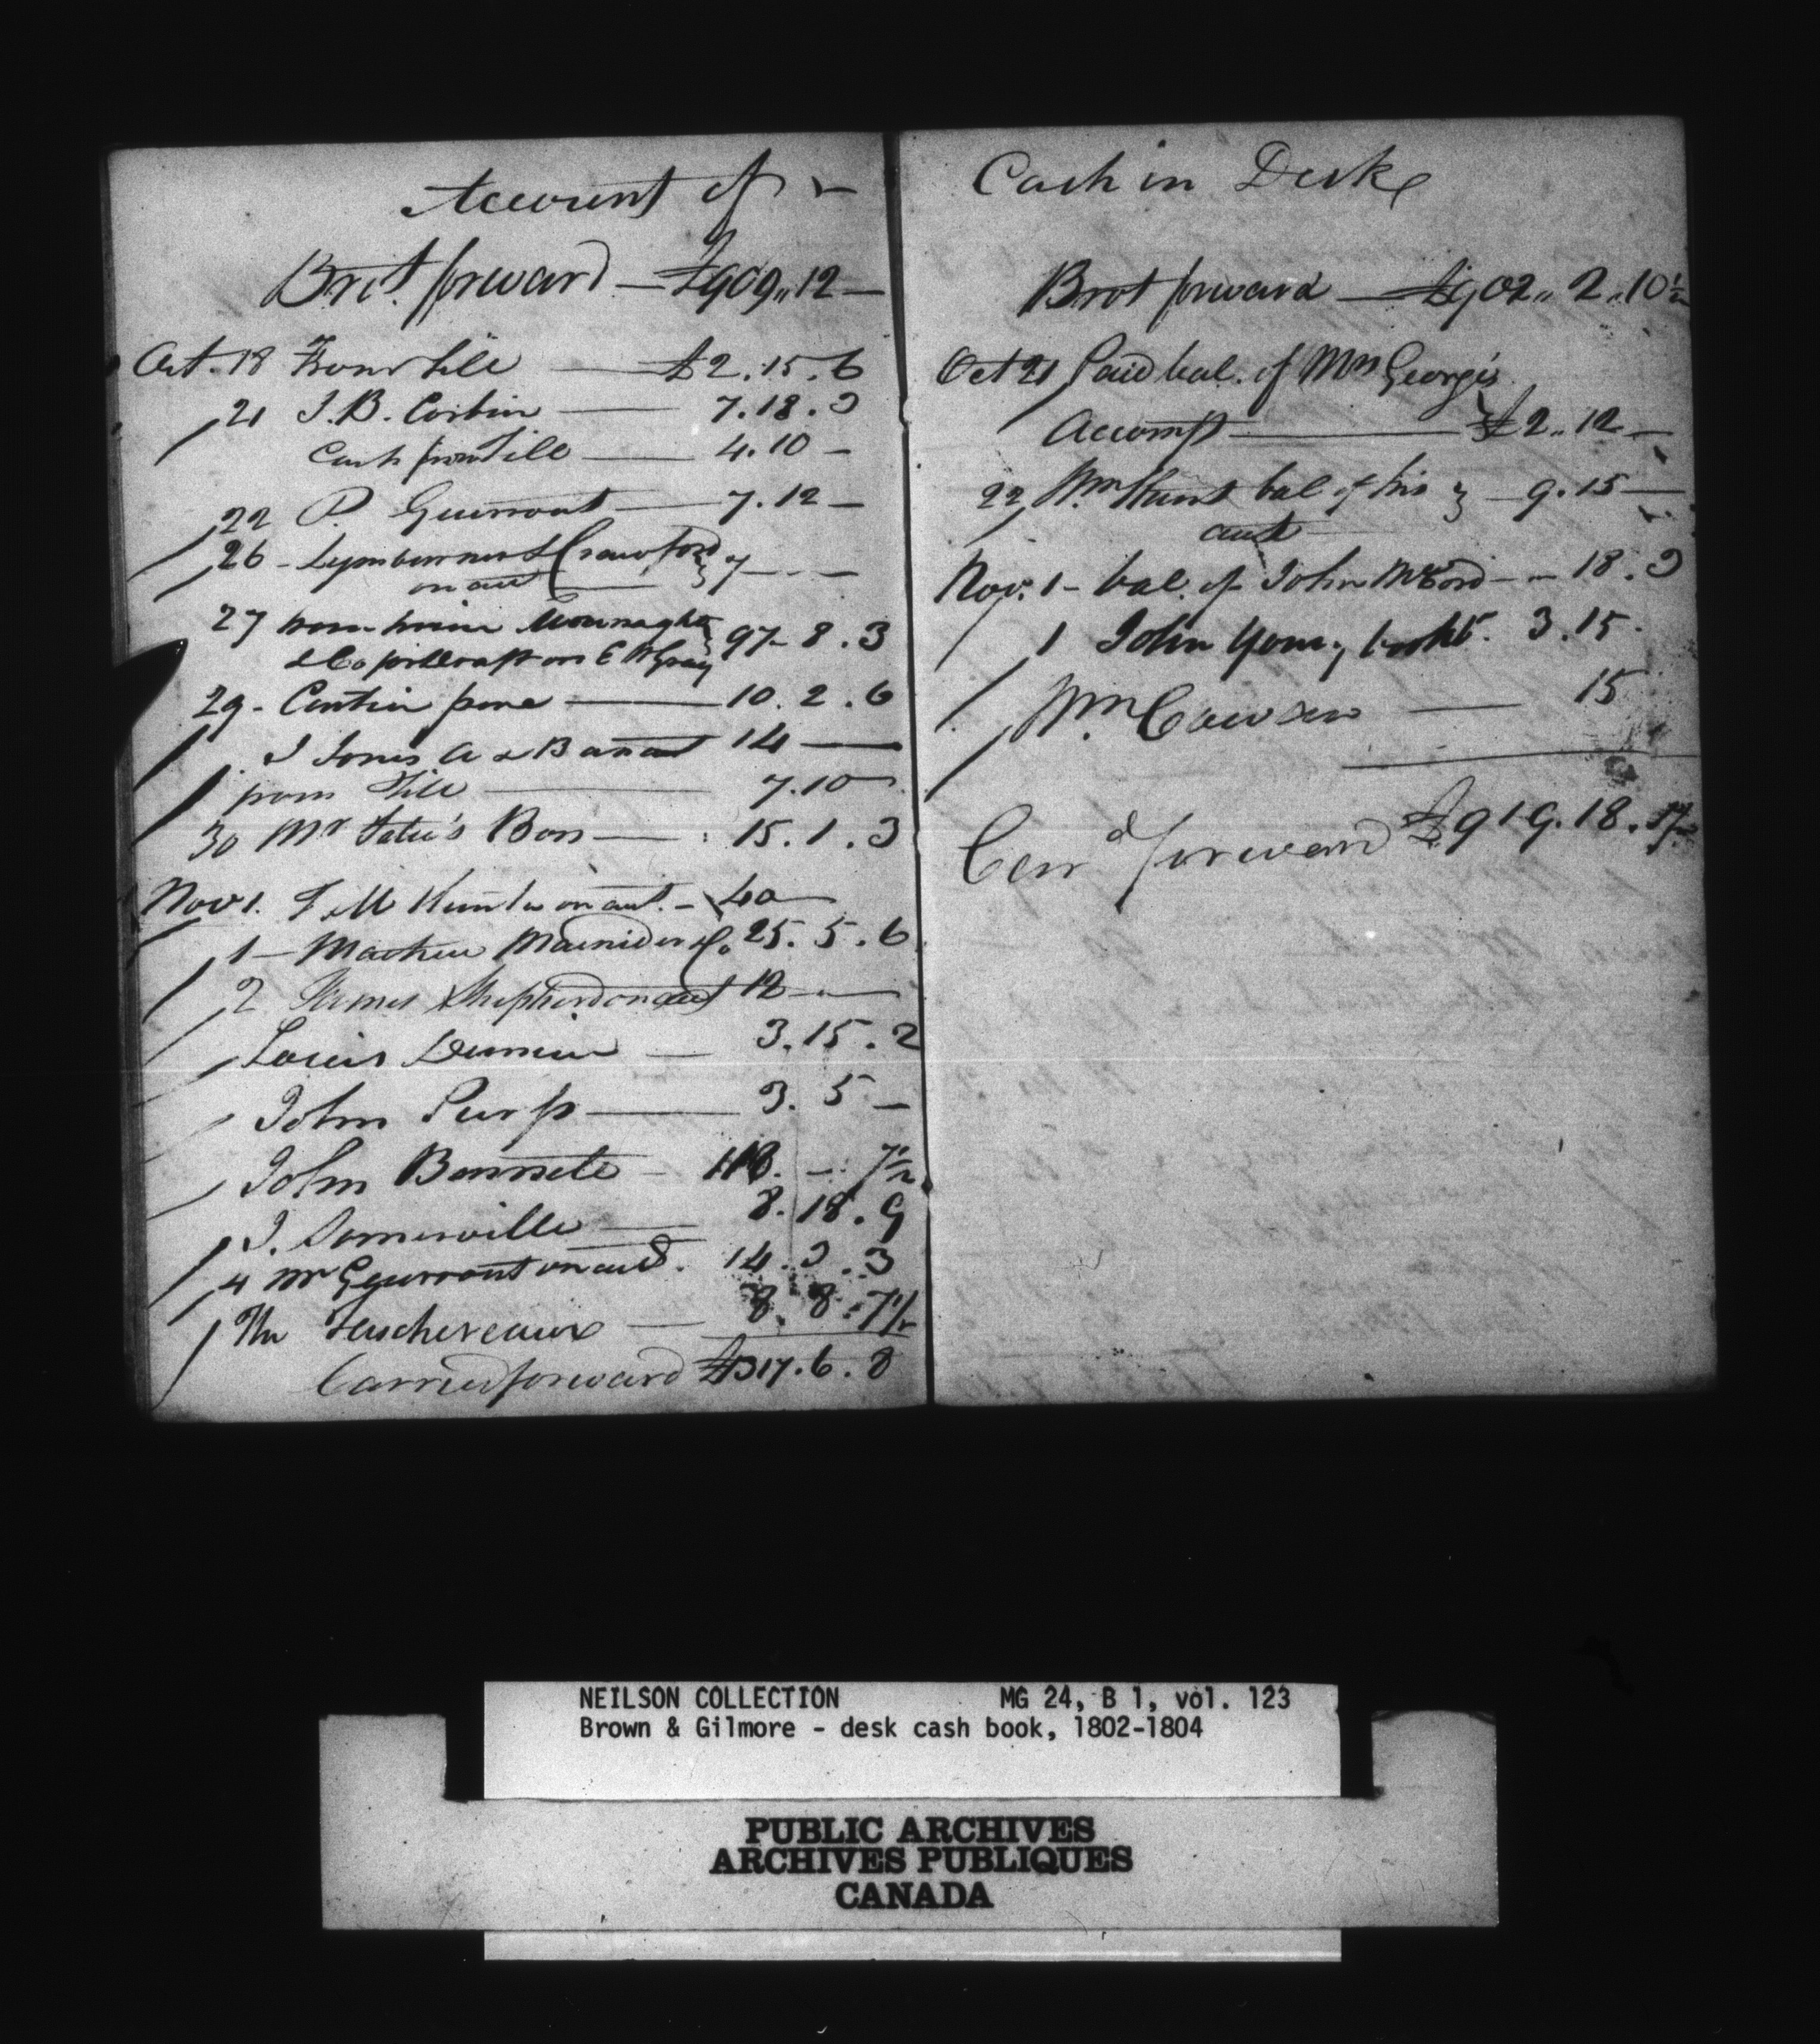 Account of
Brot. forward — £909,,12 —
Oct. 18 From till — £2.15.6
21 J.B. Corbin — 7.18.3
Cash from till — 4.10 —
22 P. Guerrout — 7.12 —
26 - Lymburner & Crawford 7 — —
on acct
27 from
& Co 97-8.3
29 - Cantin pere — 10.2.6
J Jones A & B acct 14 —
from Till — 7.10
30 Mr Bon — 15.1.3
Nov 1. on acct. - 40 —
1 — & Co 25.5.6
2 James Shepherd on acct 12 —
Louis — 3.15.2
John Purss — 3.5 —
John Bonnete — 7½
J. Somerville — 8.18.9
4 Mr Guerrout on acct. 14.3.3
Thu Taschereaux — 8.8.7½
Carried forward £1317.6.8
Cash in Desk
Brot forward — £902,,2,,10½
Oct 21 Paid bal. of Mrs George's
Accompt — £2,,12 —
22 Wm Hunt bal of his } — 9.15 —
acct
Nov. 1 - bal. of John McCord — 18.3
1 John Young 3.15.
Wm — 15
Carrd forward £919.18.
NEILSON COLLECTION MG 24, B 1, vol. 123
Brown & Gilmore - desk cash book, 1802-1804
PUBLIC ARCHIVES
ARCHIVES PUBLIQUES
CANADA